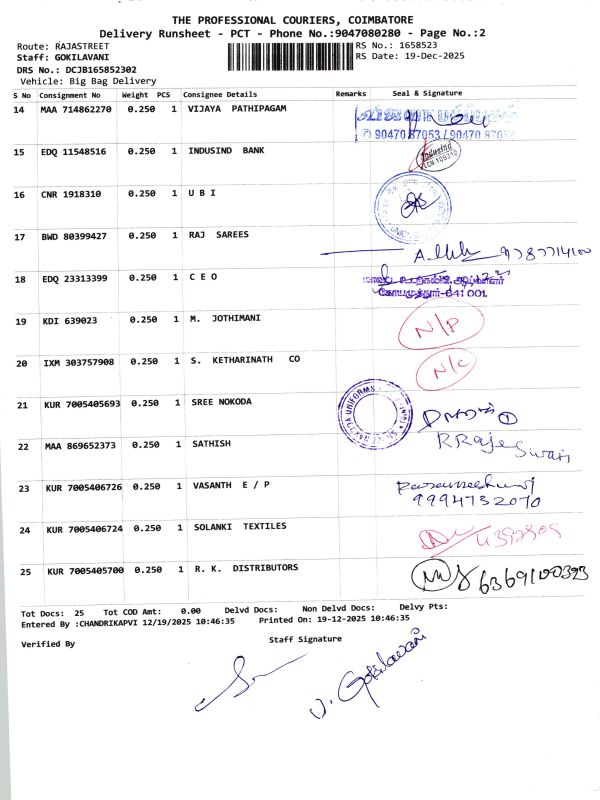 THE PROFESSIONAL COURIERS, COIMBATORE
Delivery Runsheet - PCT - Phone No.:9047080280 - Page No.:2
Route: RAJASTREET RS No.: 1658523
Staff: GOKILAVANI RS Date: 19-Dec-2025
DRS No.: DCJB165852302
Vehicle: Big Bag Delivery
S No Consignment No Weight PCS Consignee Details Remarks Seal & Signature
14 MAA 714862270 0.250 1 VIJAYA PATHIPAGAM
90470 87053 / 90470 87052
15 EDQ 11548516 0.250 1 INDUSIND BANK
Indusind
16 CNR 1918310 0.250 1 U B I
17 BWD 80399427 0.250 1 RAJ SAREES
18 EDQ 23313399 0.250 1 C E O
கோயமுத்தூர்-641 001.
19 KDI 639023 0.250 1 M. JOTHIMANI N/P
20 IXM 303757908 0.250 1 S. KETHARINATH CO N/C
21 KUR 7005405693 0.250 1 SREE NOKODA
UNIFORMS
22 MAA 869652373 0.250 1 SATHISH R Rajeswari
23 KUR 7005406726 0.250 1 VASANTH E / P
9994732070
24 KUR 7005406724 0.250 1 SOLANKI TEXTILES
25 KUR 7005405700 0.250 1 R. K. DISTRIBUTORS 6369100393
Tot Docs: 25 Tot COD Amt: 0.00 Delvd Docs: Non Delvd Docs: Delvy Pts:
Entered By :CHANDRIKAPVI 12/19/2025 10:46:35 Printed On: 19-12-2025 10:46:35
Verified By Staff Signature
V. Gokilavani